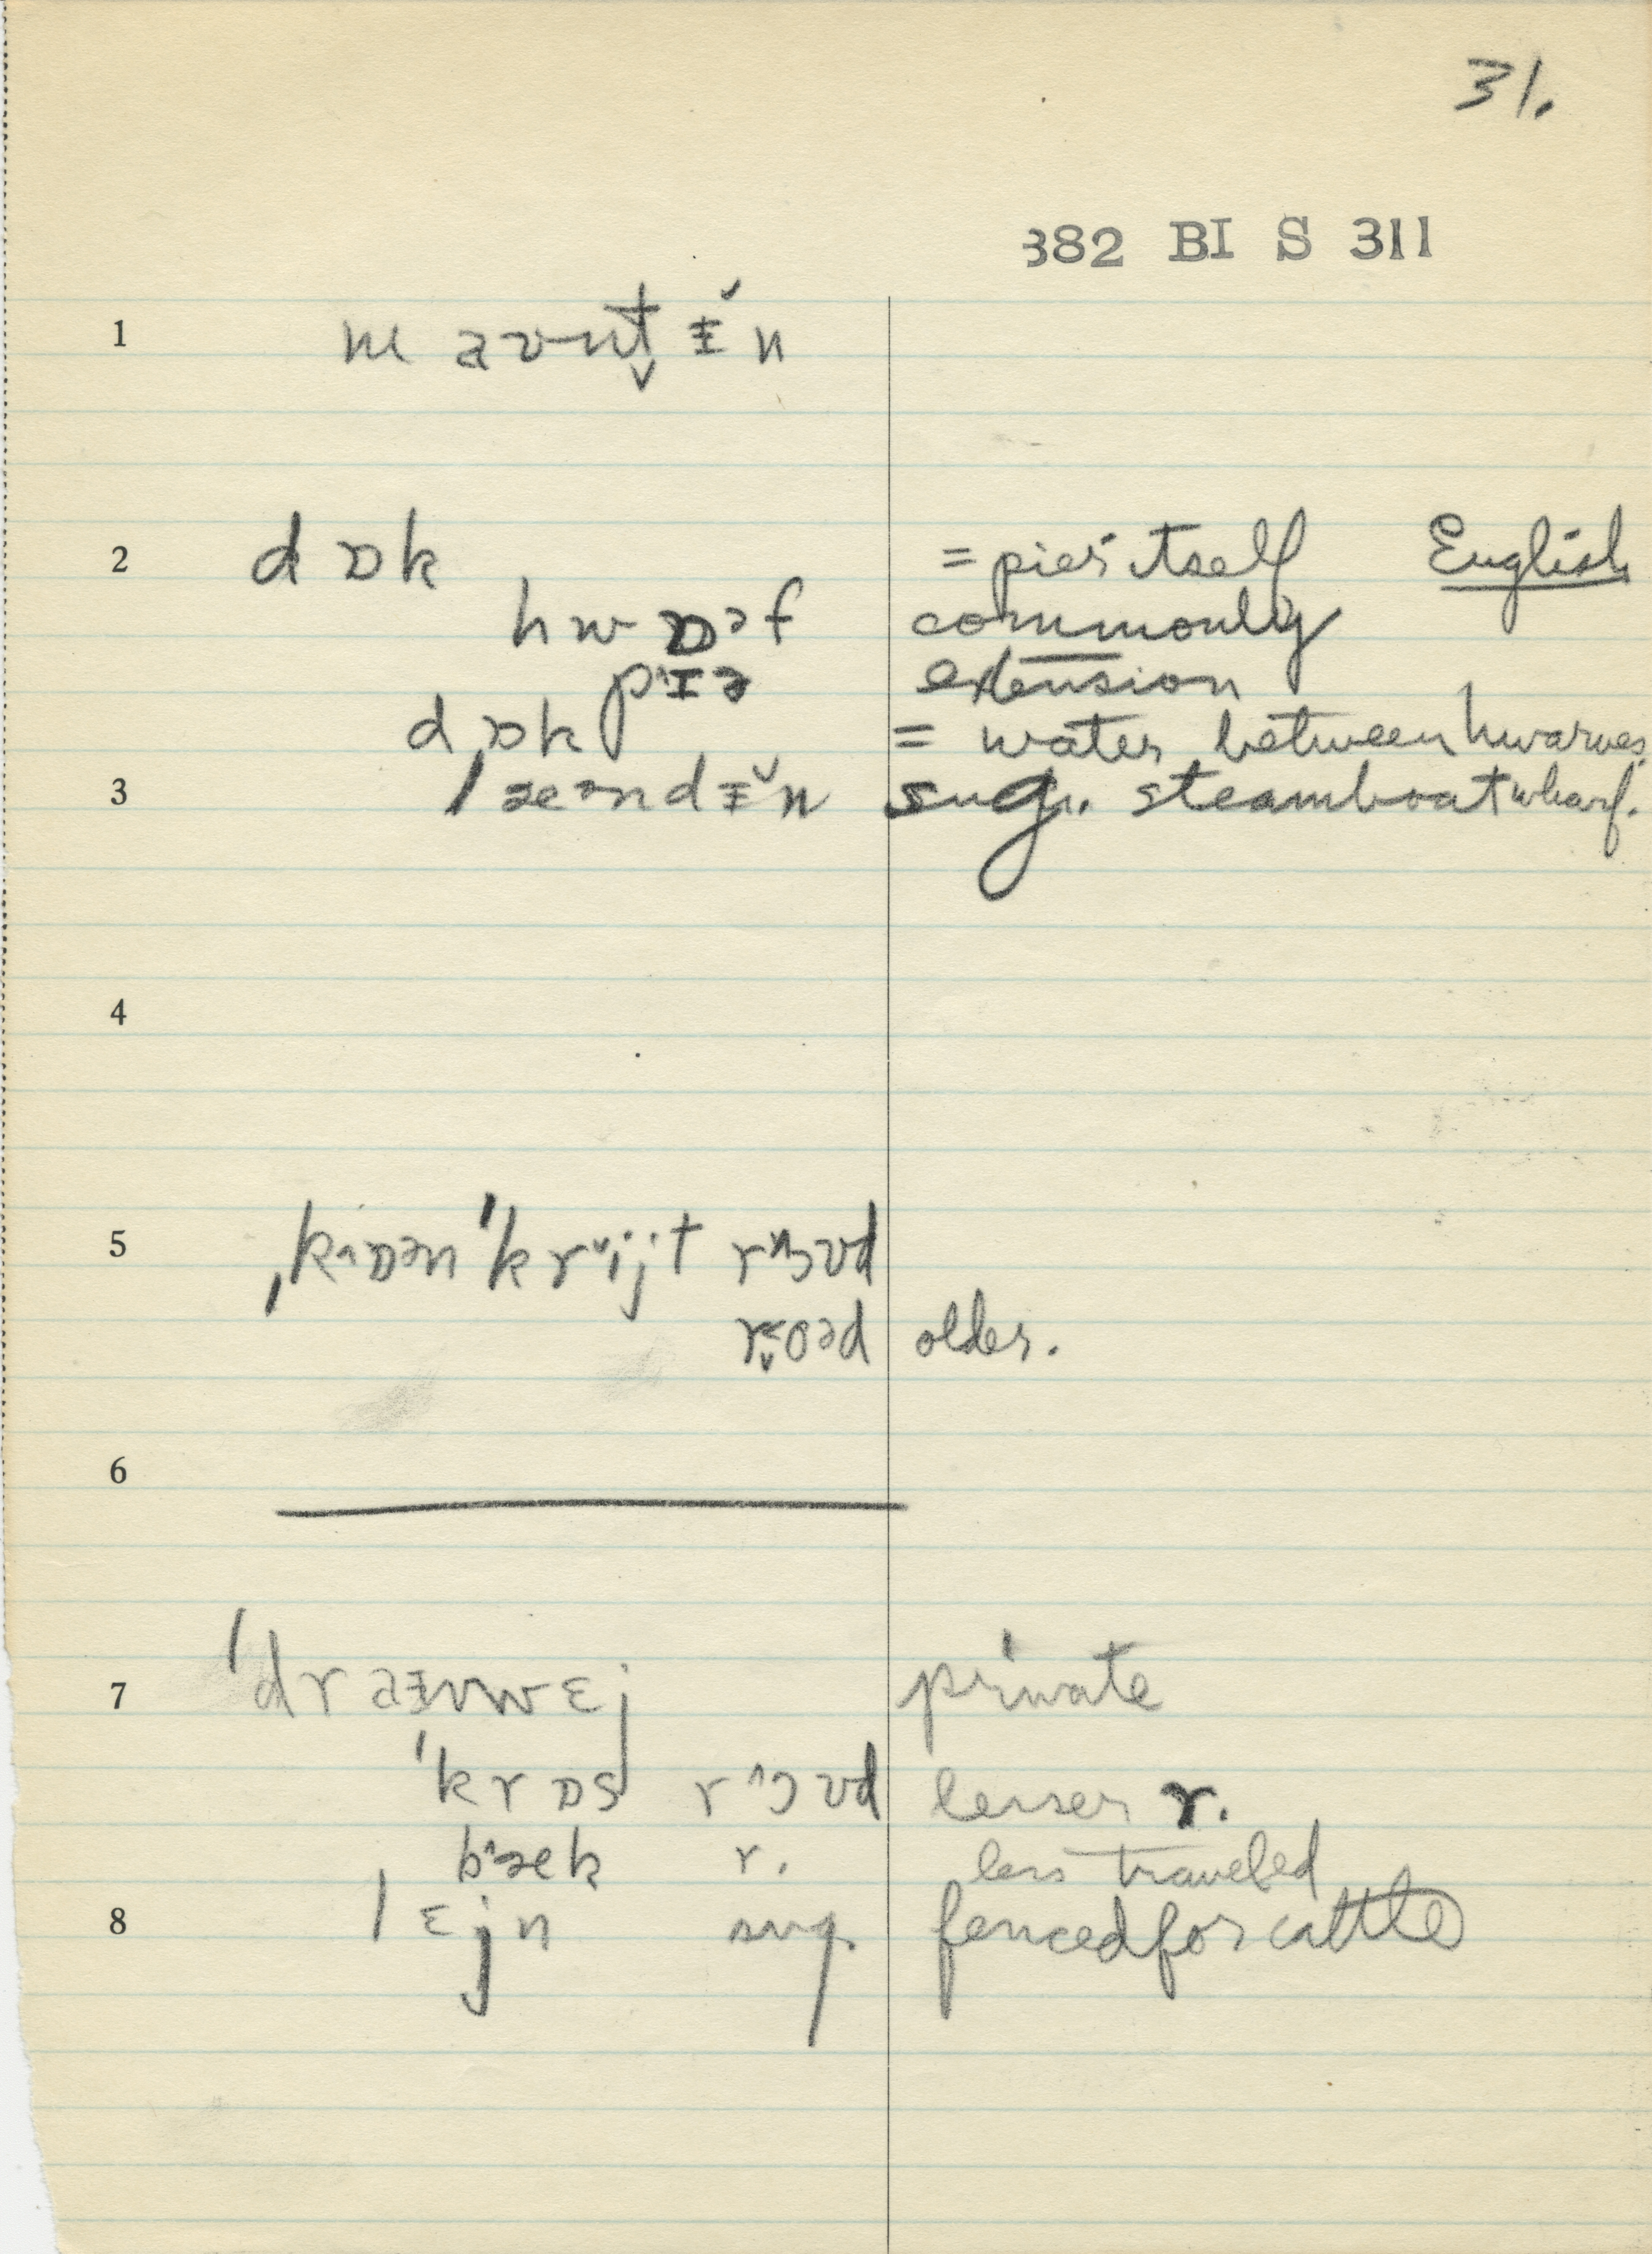 31.
382 BI S 311
1 m aʊnt̬ ᵻ̆ n
2 d ɒk = pier itself English
hw ɒᵊf commonly
pˑɪə extension
d ɒk = water between hwarves
3 læᵊndᵻ̆n sug. steamboat wharf.
4
5 ˌkˑɒən ˈkrᵛijt rɔʊd
oəd older.
6
7 ˈdraᵻvwɛj private
ˈkrɒs r^ɔʊd lesser r.
b^æk r. less traveled
8 lɛjn sug. fenced for cattle